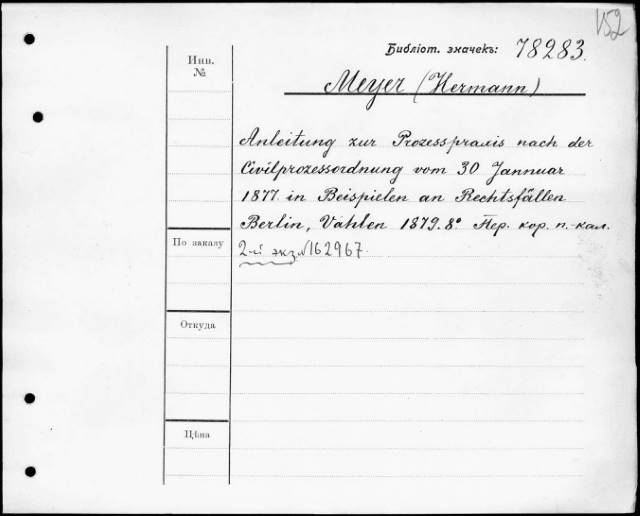 152
Библіот. значекъ: 78283.
Инв.
№
Meyer (Hermann)
Anleitung zur Prozesspraxis nach der
Civilprozessordnung vom 30 Jannuar
1877 in Beispielen an Rechtsfällen
Berlin, Vahlen 1879. 8° Пер. кор. п.-кал.
По заказу
2-й экз. №162967.
Откуда
Цѣна